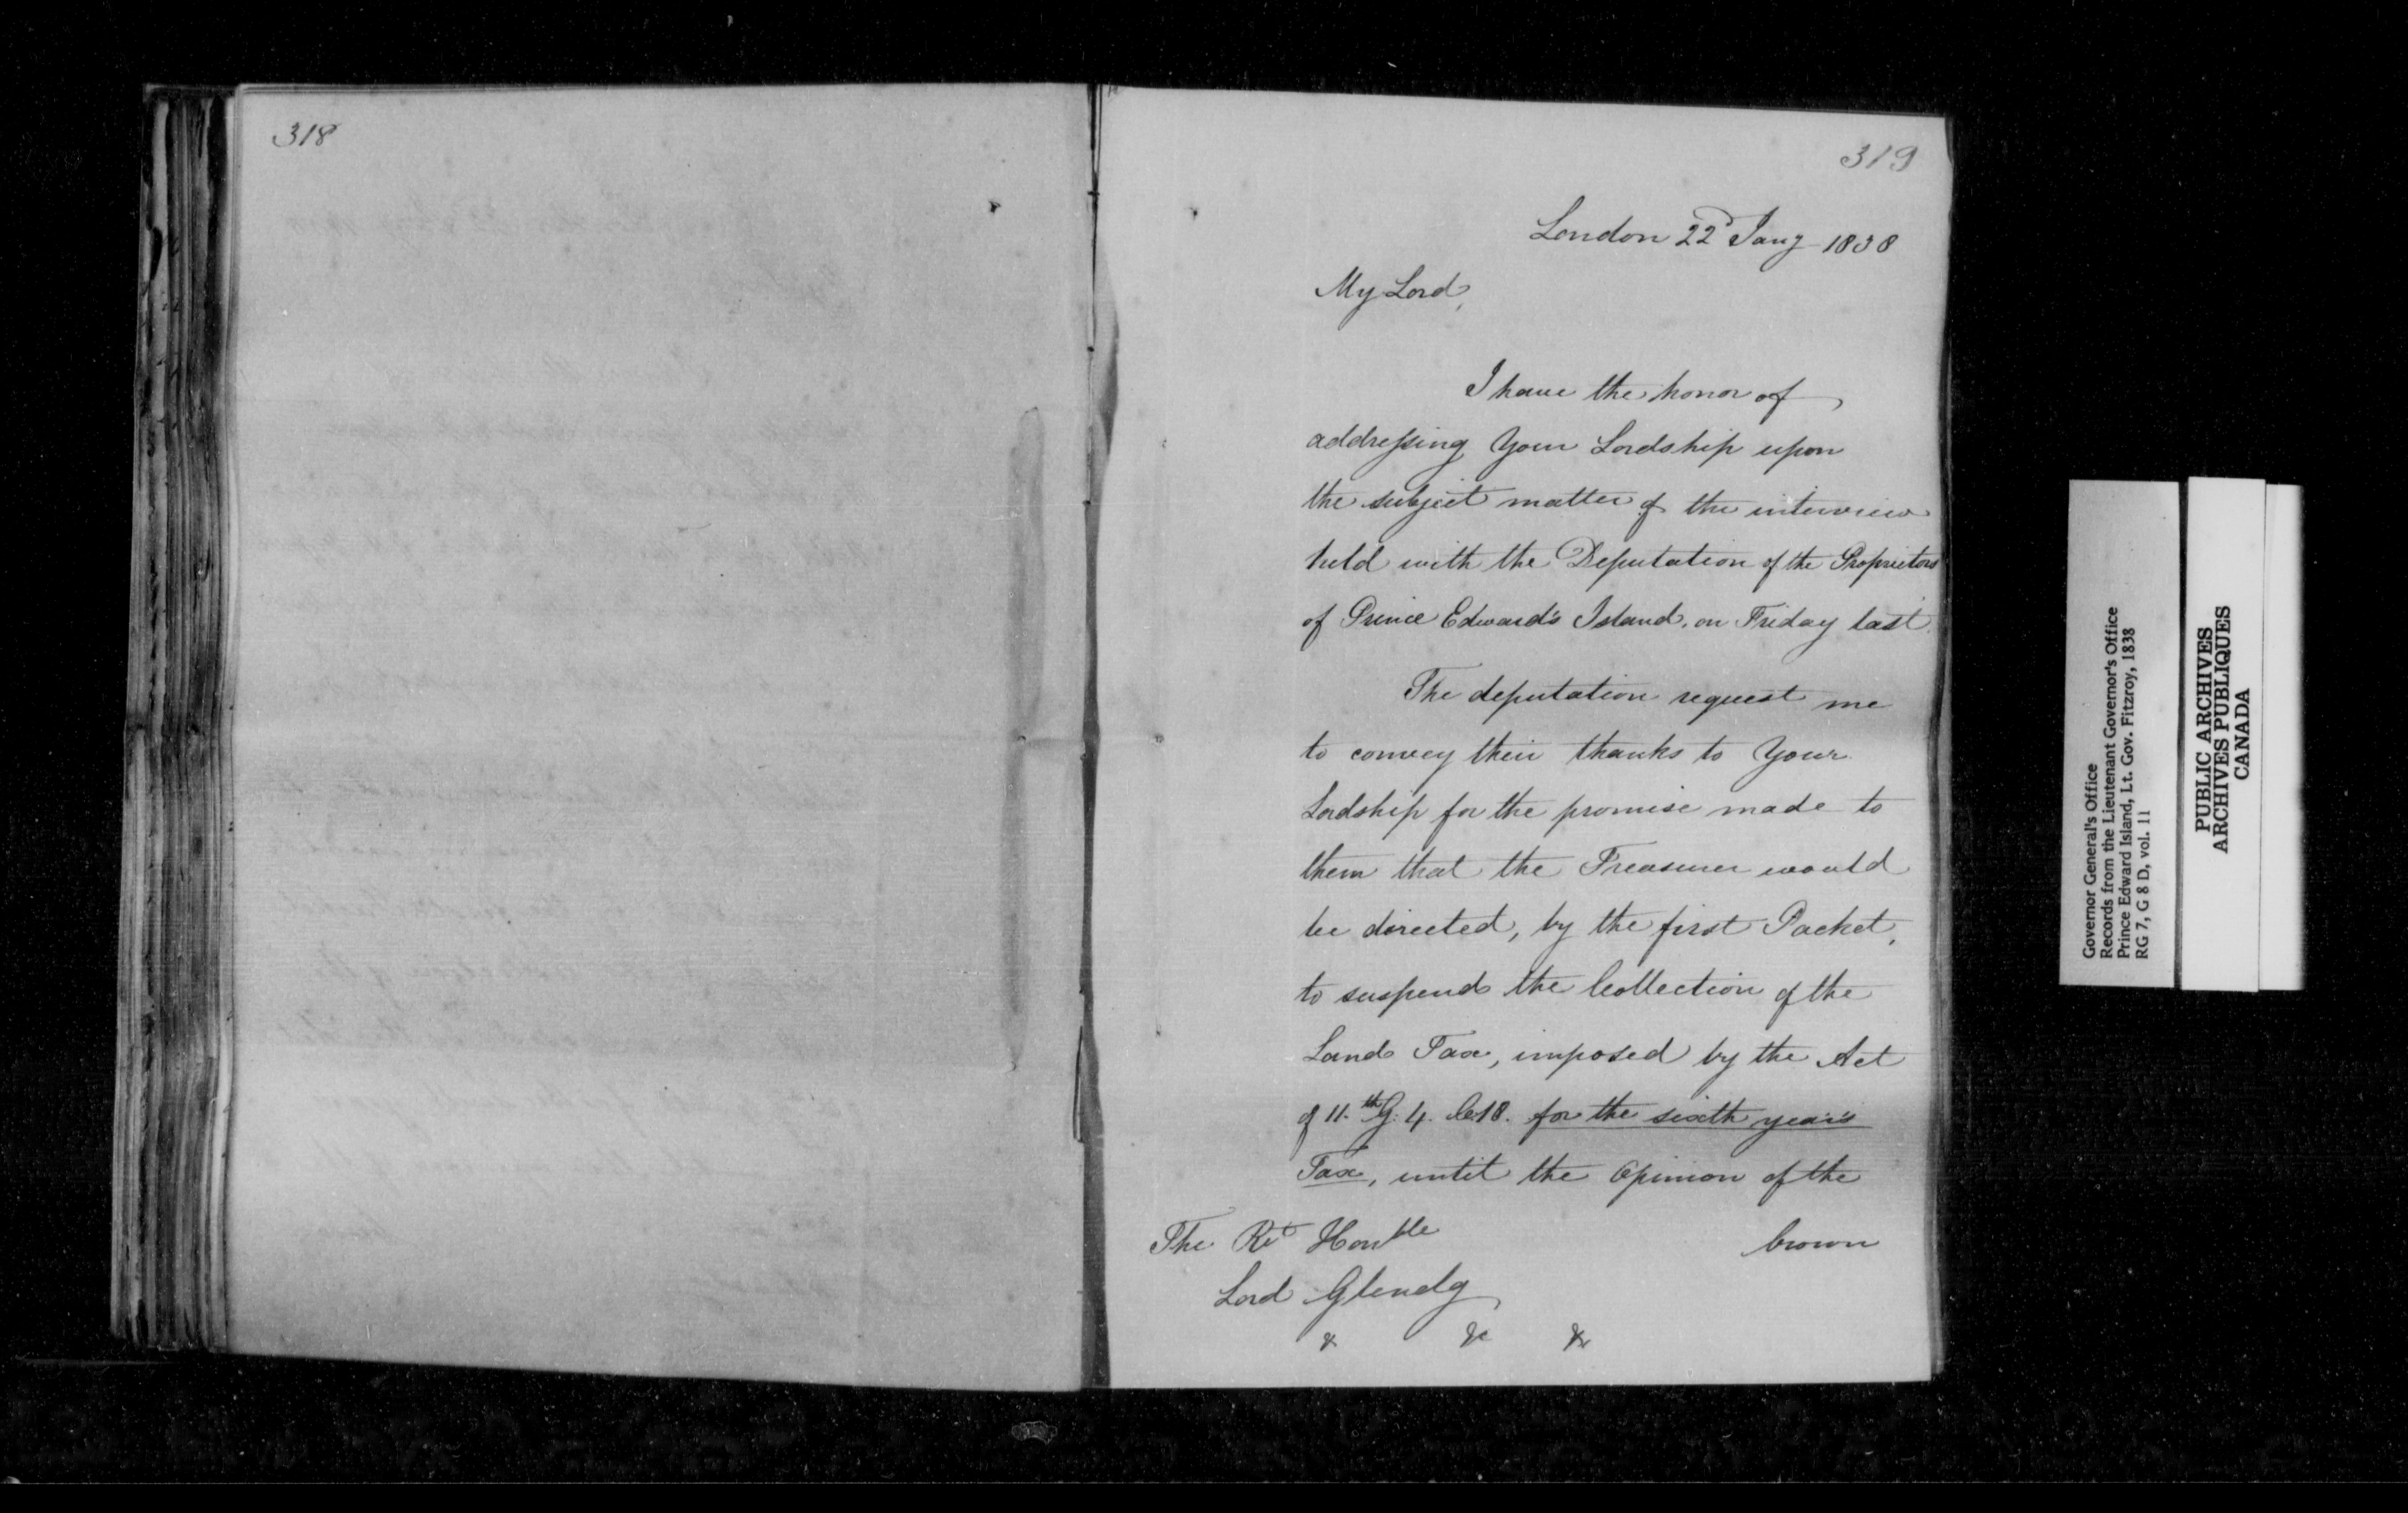 318
319
London 22d Jany 1838
My Lord,
I have the honor of
addressing Your Lordship upon
the subject matter of the interview
held with the Deputation of the Proprietors
of Prince Edward's Island, on Friday last.
The deputation request me
to convey their thanks to Your
Lordship for the promise made to
them that the Treasurer would
be directed, by the first Packet,
to suspend the Collection of the
Land Tax, imposed by the Act
of 11.th G. 4. C.18. for the sixth year's
Tax, until the Opinion of the
Crown
The Rt Honble
Lord Glenelg
& &c &c
Governor General's Office
Records from the Lieutenant Governor's Office
Prince Edward Island, Lt. Gov. Fitzroy, 1838
RG 7, G 8 D, vol. 11
PUBLIC ARCHIVES
ARCHIVES PUBLIQUES
CANADA